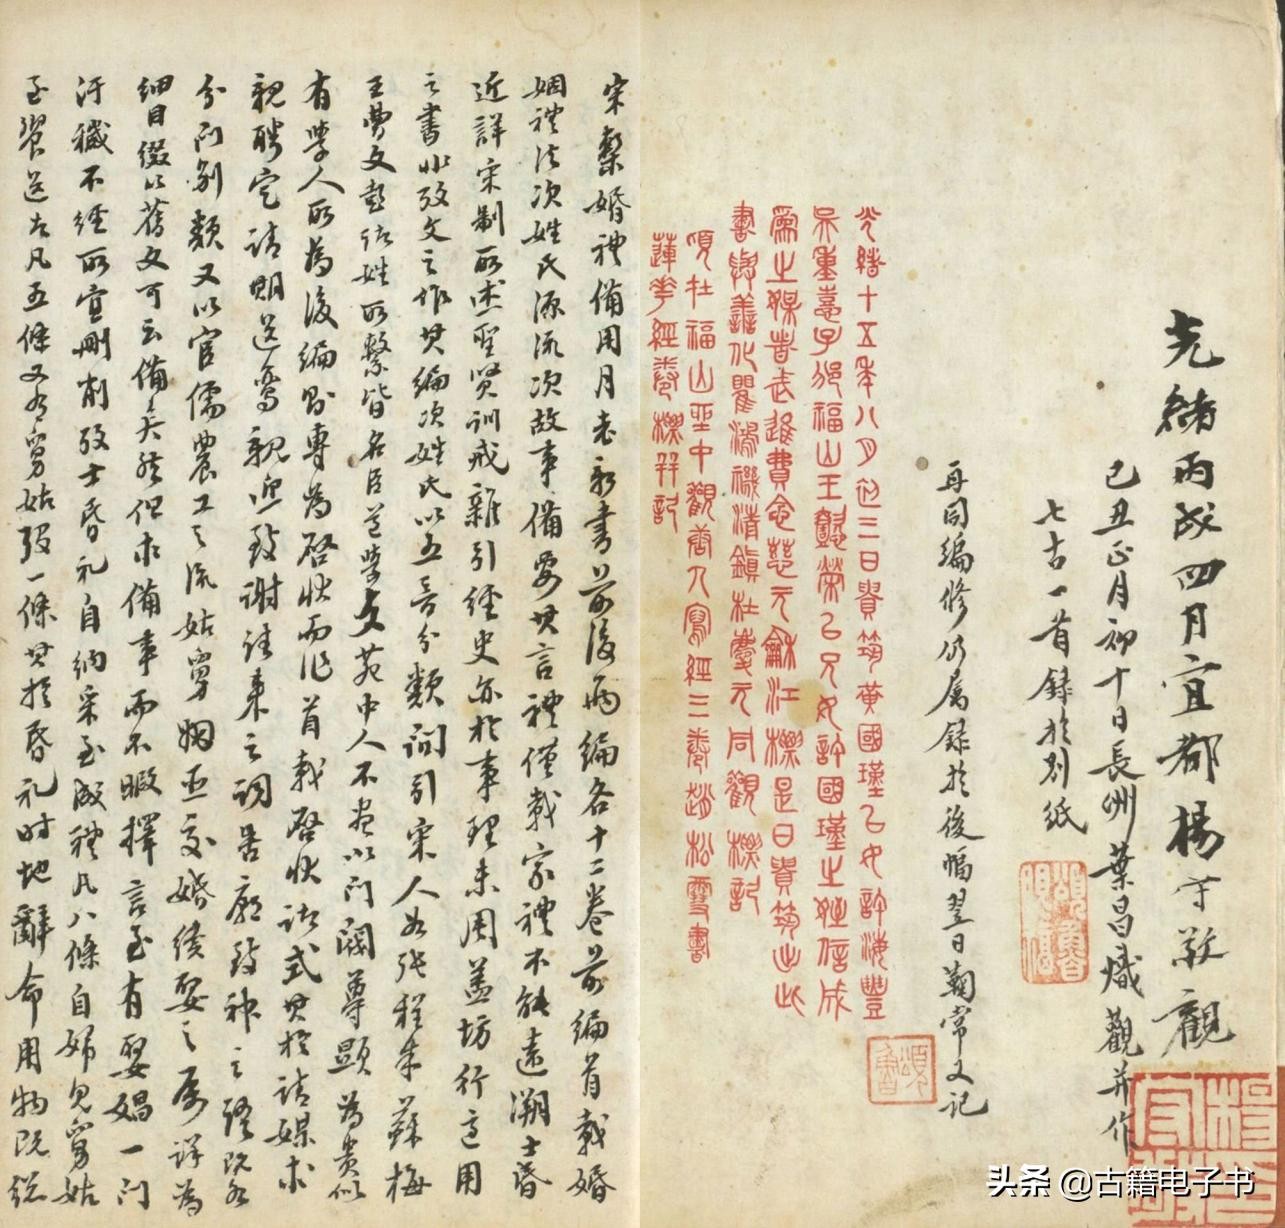 光緒丙戌四月宜都楊守敬觀
己丑正月初十日長洲葉昌熾觀并作
七古一首錄於別紙
再同編修仍屬錄於後幅翌日鞠常又記
頌魯
光緒十五年八月之三日貴筑黃國瑾乙女許海豐
吳重憙子邠福山王懿榮乙兄女許國瑾之姪信成
為之媒者武進費念慈元龢江標是日貴筑出此
書與善化瞿鴻禨清鎮杜慶元同觀標記
頃在福山坐中觀唐人寫經三卷趙松雪書
蓮華經卷標并記
宋槧婚禮備用月老新書前後兩編各十二卷前編首載婚
姻禮法次姓氏源流次故事備要其言禮僅載家禮不能遠溯士昏
近詳宋制所述聖賢訓戒雜引經史亦於事理未周蓋坊行適用
之書非攷文之作其編次姓氏以五音分類詞引宋人如張程朱蘇梅
王曾文彭諸姓所繫皆名臣道學文苑中人不盡以門閥尊顯為貴似
有學人所為後編則專為啓狀而作首載啓狀諸式其於請媒求
親聘定請期送鸞親迎致謝請柬之詞告廟致神之語既各
分門別類又以官儒農工之流姑舅姻亞交婚續娶之屬詳為
細目綴以舊文可云備矣然但求備事而不暇擇言至有娶娼一門
汙穢不經所宜刪削攷士昏礼自納采至成禮凡八條自婦見舅姑
至饗送者凡五條又有舅姑歿一條其於昏礼時地辭命用物既總
头条 @古籍电子书